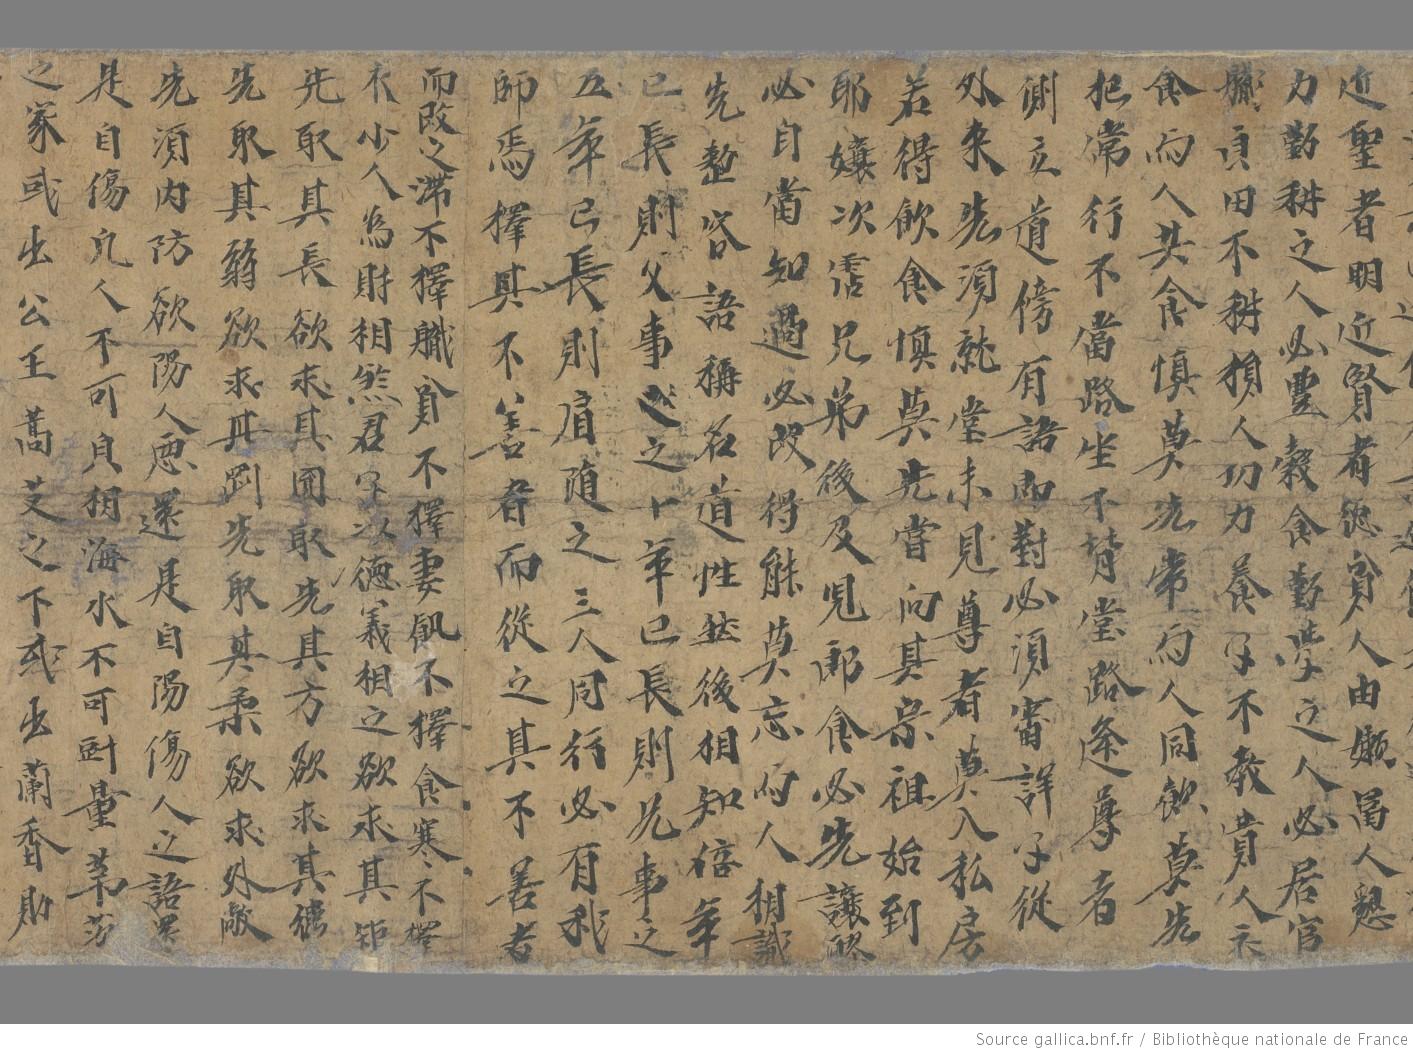 近聖者明近賢者德貧人由嬾富人懇
力勤耕之人必豐穀食勤學之人必居官
職良田不耕損人功力養子不教費人衣
食而人共食慎莫先常而人同飲莫先
把常行不當路坐不背堂路逢尊者
側立道傍有語即對必須審詳子從
外来先須就堂未見尊者莫入私房
若得飲食慎莫先嘗向其宗祖始到
耶孃次霑兄弟後及兒郎食必先讓
必自當知過必改得能莫忘而人相識
先整容語稱名道性然後相知倍年
已長則父事之十年已長則兄事之
五年已長則肩隨之三人同行必有我
師焉擇其不善者而從之其不善者
而改之滞不擇職貧不擇妻飢不擇食寒不擇
衣少人為財相煞君子以德義相之欲求其矩
先取其長欲求其圓取先其方欲求其
先取其弱欲求其剛先取其柔欲求外敵
先須内防欲陽人惡還是自陽傷人之語還
是自傷凡人不可貌相海水不可㪷量茅茨
之家或出公王蒿艾之下或出蘭香則
Source gallica.bnf.fr / Bibliothèque nationale de France